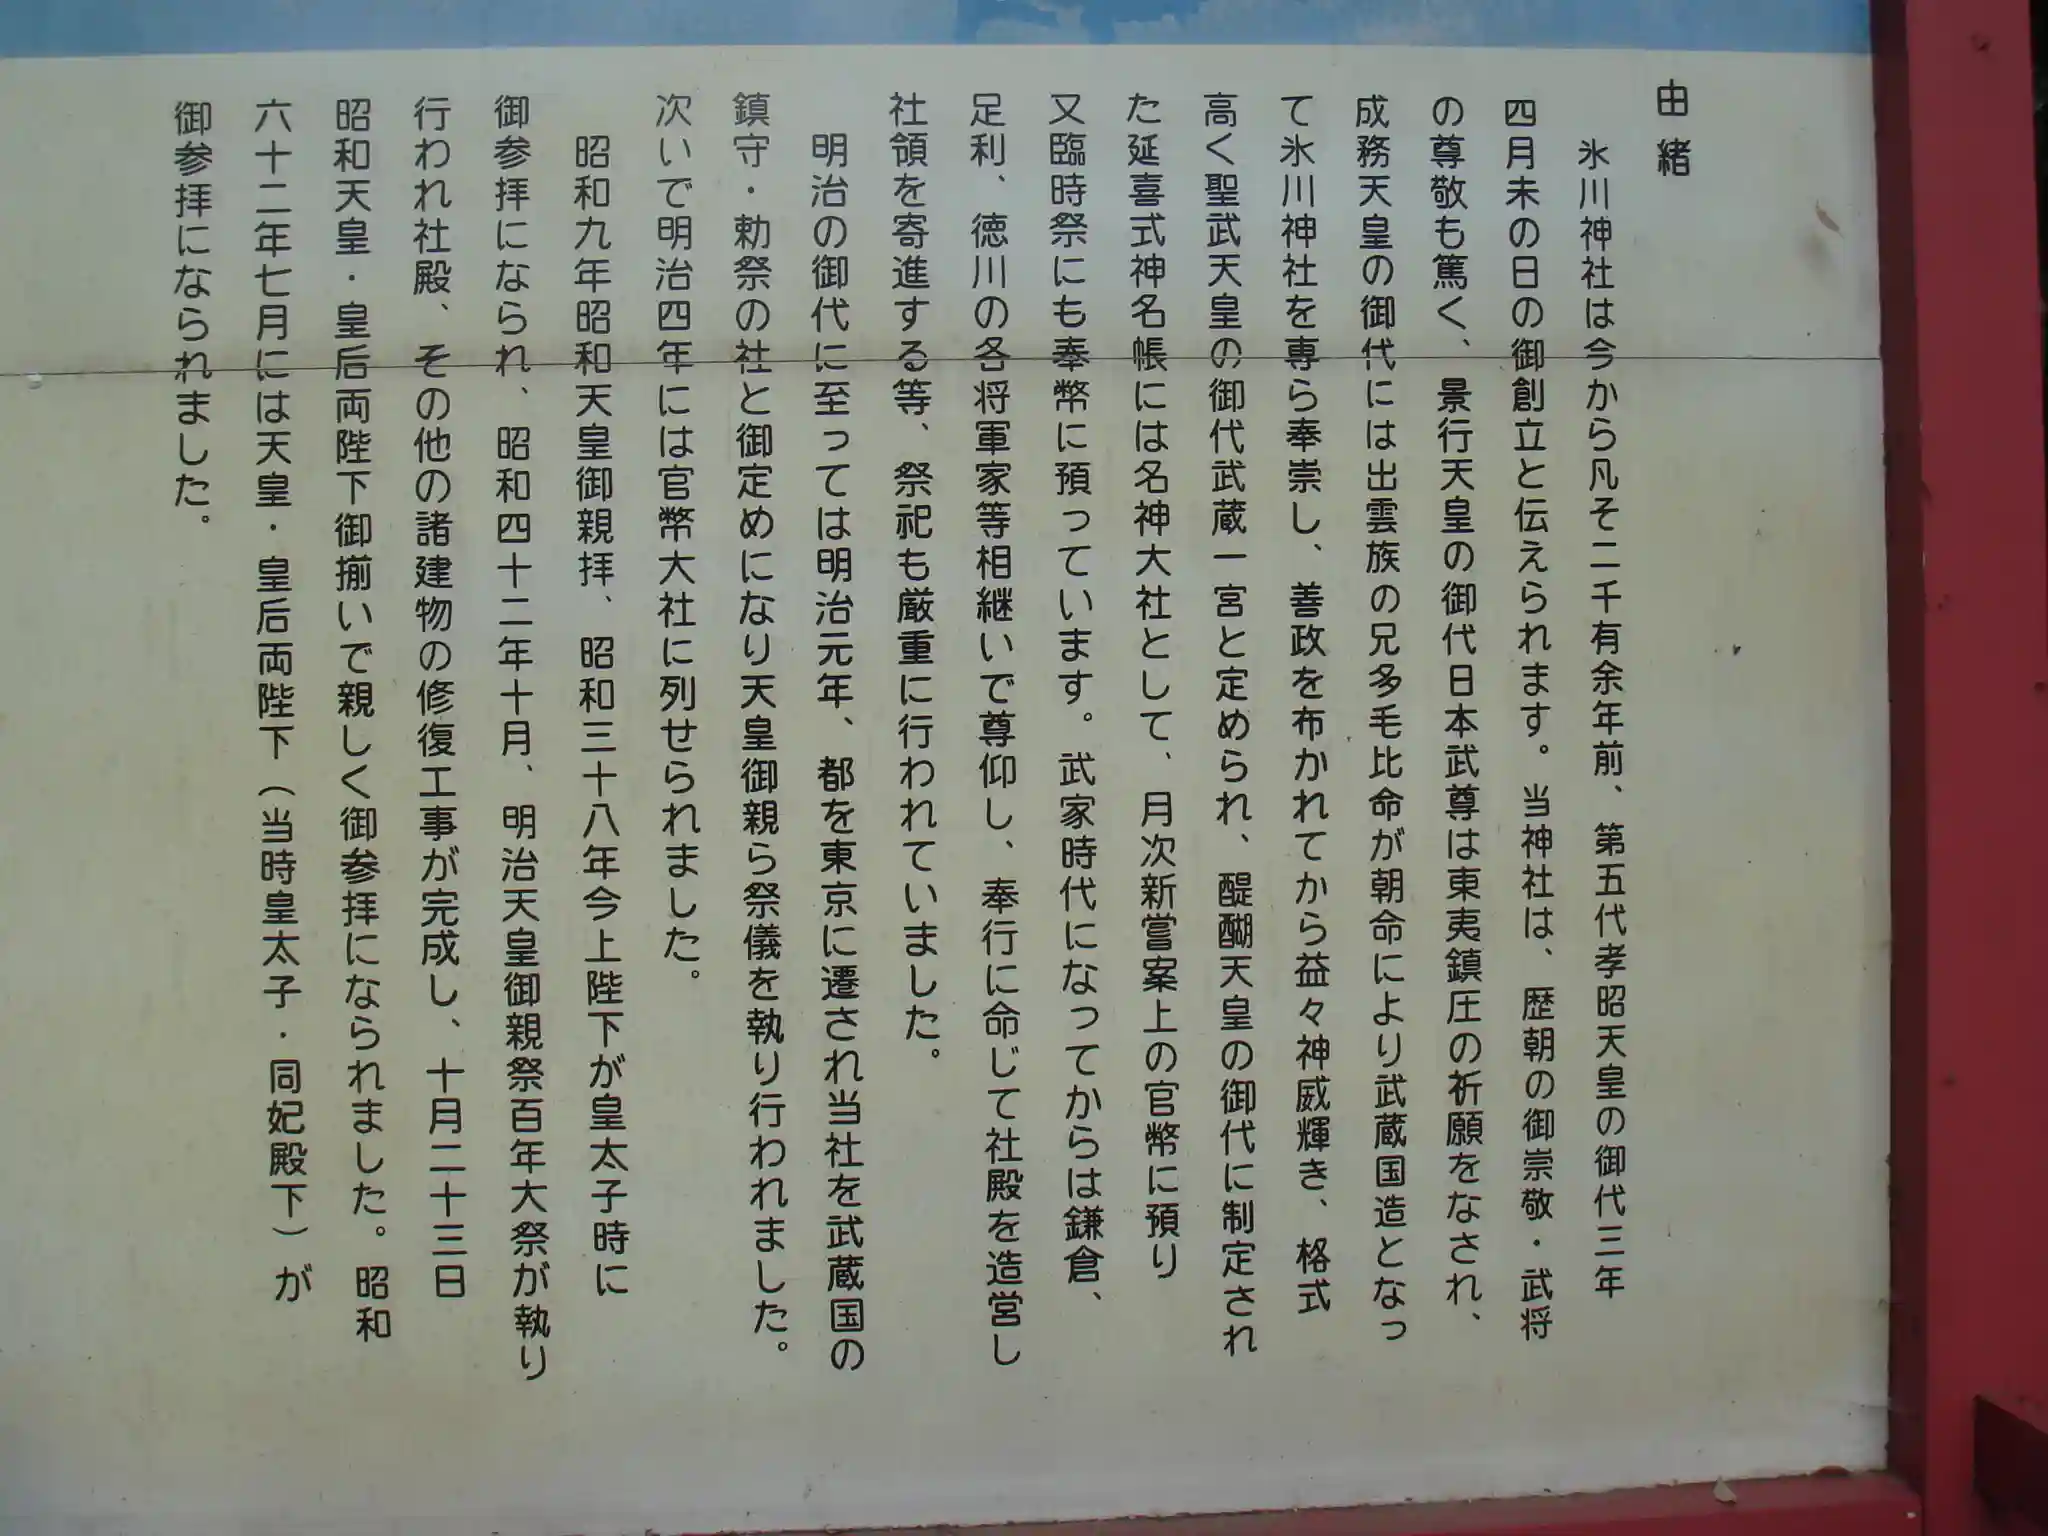 由緒
氷川神社は今から凡そ二千有余年前、第五代孝昭天皇の御代三年
四月未の日の御創立と伝えられます。当神社は、歴朝の御崇敬・武将
の尊敬も篤く、景行天皇の御代日本武尊は東夷鎮圧の祈願をなされ、
成務天皇の御代には出雲族の兄多毛比命が朝命により武蔵国造となっ
て氷川神社を専ら奉崇し、善政を布かれてから益々神威輝き、格式
高く聖武天皇の御代武蔵一宮と定められ、醍醐天皇の御代に制定され
た延喜式神名帳には名神大社として、月次新嘗案上の官幣に預り
又臨時祭にも奉幣に預っています。武家時代になってからは鎌倉、
足利、徳川の各将軍家等相継いで尊仰し、奉行に命じて社殿を造営し
社領を寄進する等、祭祀も厳重に行われていました。
明治の御代に至っては明治元年、都を東京に遷され当社を武蔵国の
鎮守・勅祭の社と御定めになり天皇御親ら祭儀を執り行われました。
次いで明治四年には官幣大社に列せられました。
昭和九年昭和天皇御親拝、昭和三十八年今上陛下が皇太子時に
御参拝になられ、昭和四十二年十月、明治天皇御親祭百年大祭が執り
行われ社殿、その他の諸建物の修復工事が完成し、十月二十三日
昭和天皇・皇后両陛下御揃いで親しく御参拝になられました。昭和
六十二年七月には天皇・皇后両陛下（当時皇太子・同妃殿下）が
御参拝になられました。